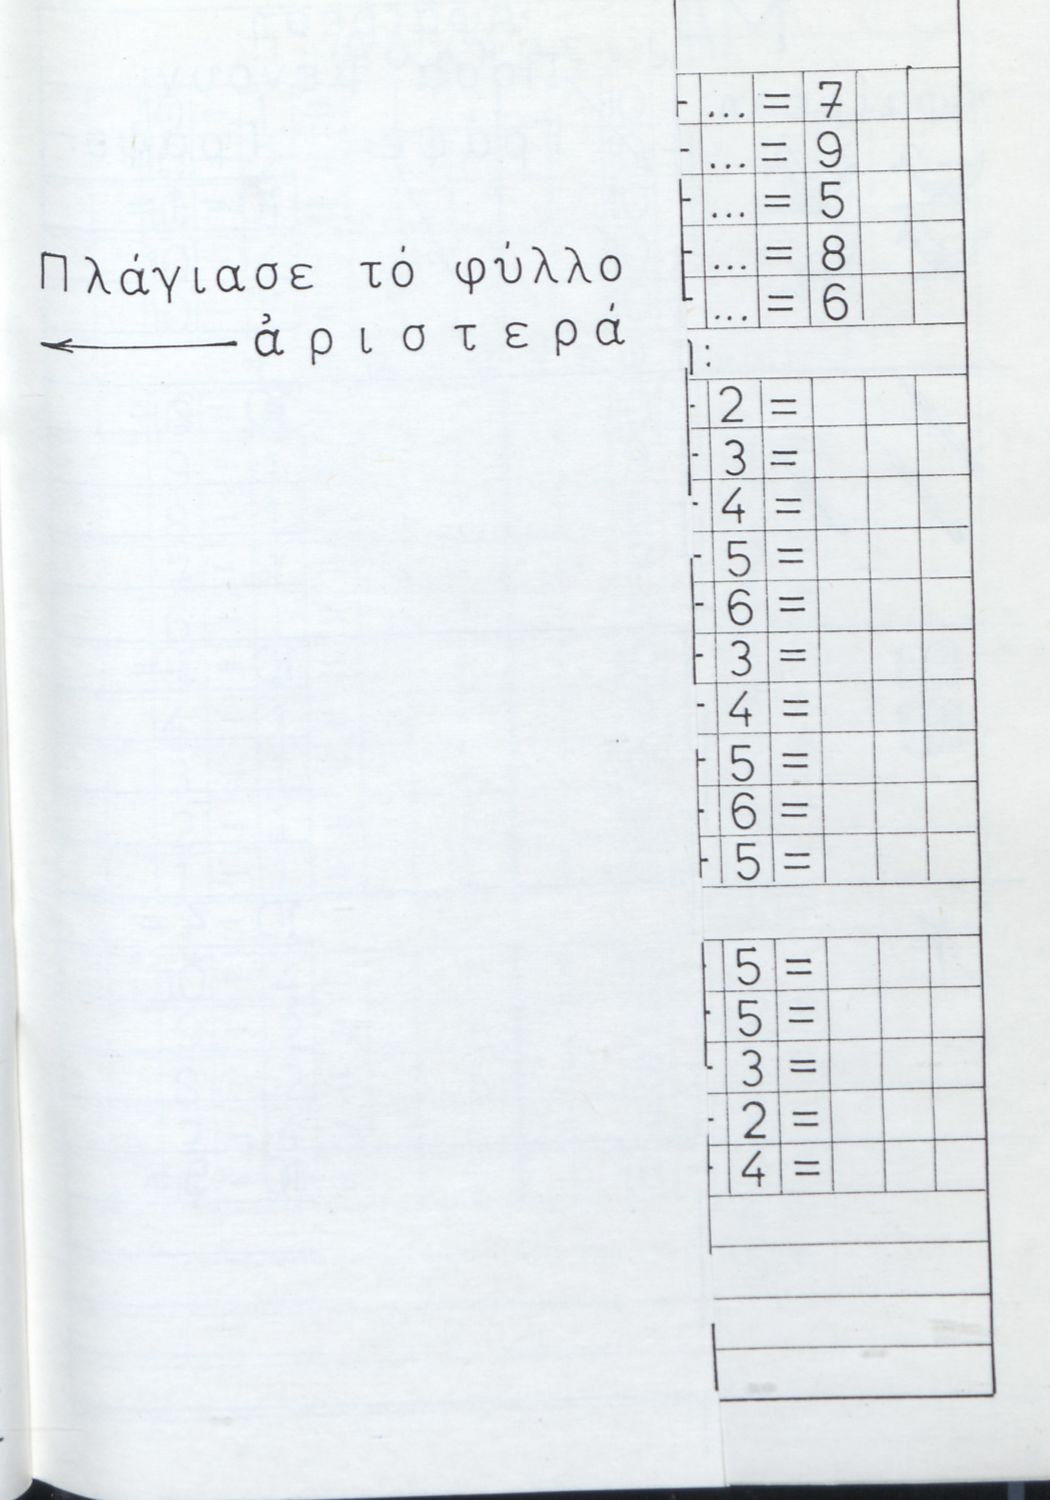 Πλάγιασε τό φύλλο
ἀριστερά
... = 7
... = 9
... = 5
... = 8
... = 6
:
2 =
3 =
4 =
5 =
6 =
3 =
4 =
5 =
6 =
5 =
5 =
5 =
3 =
2 =
4 =